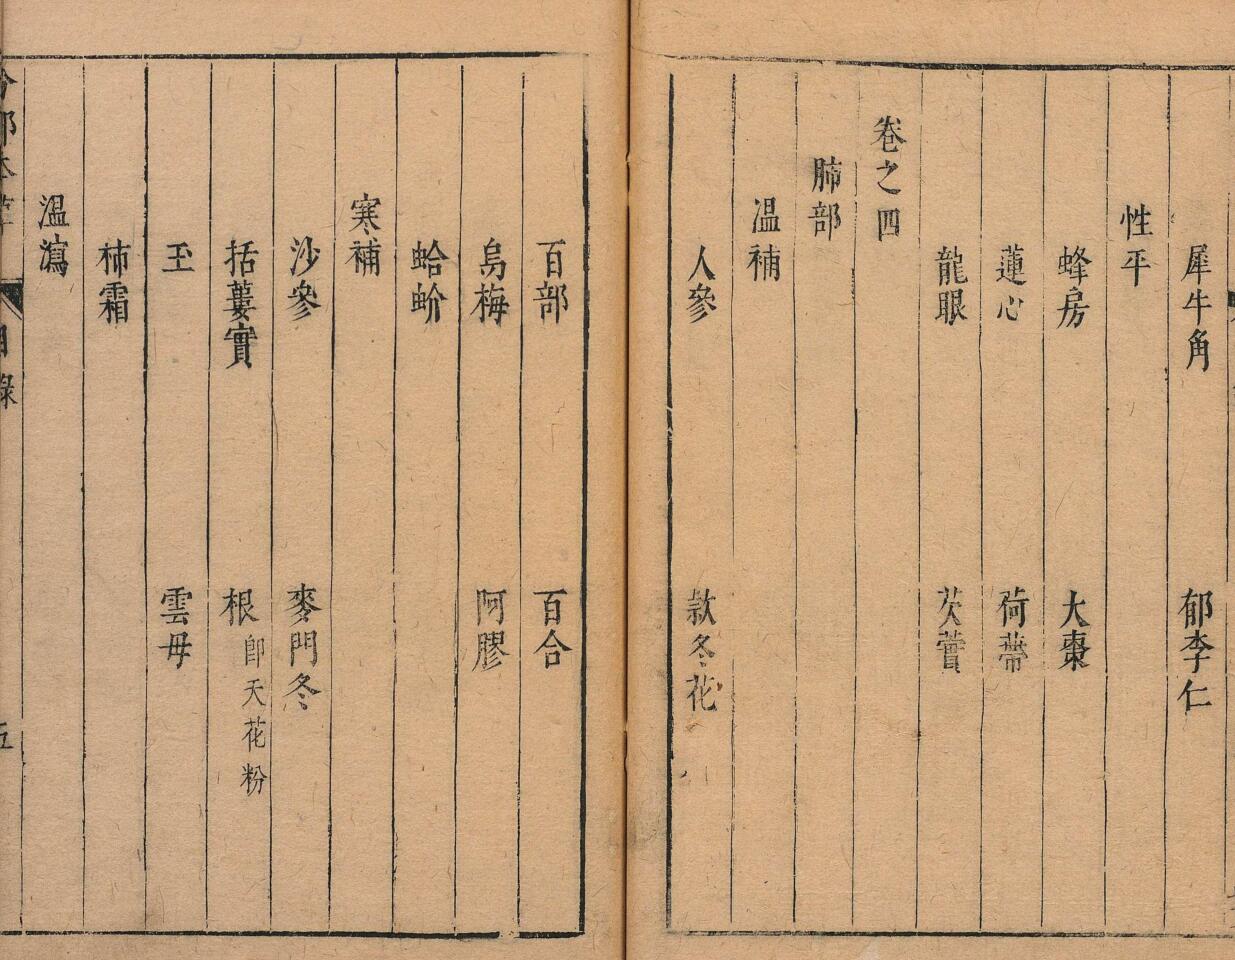 犀牛角　郁李仁
性平
蜂房　大棗
蓮心　荷蒂
龍眼　芡實
卷之四
肺部
温補
人參　款冬花
百部　百合
烏梅　阿膠
蛤蚧
寒補
沙參　麥門冬
括蔞實　根卽天花粉
玉　雲母
柿霜
溫瀉
分部本草　目錄　五